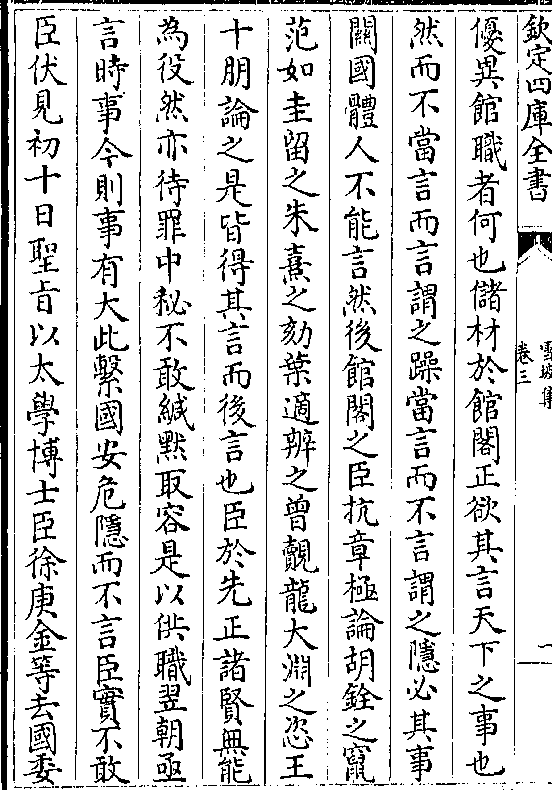 欽定四庫全書
雪坡集
卷三
一
優異館職者何也儲材於館閣正欲其言天下之事也
然而不當言而言謂之躁當言而不言謂之隱必其事
關國體人不能言然後館閣之臣抗章極論胡銓之竄
范如圭留之朱熹之劾葉適辨之曾覿龍大淵之恣王
十朋論之是皆得其言而後言也臣於先正諸賢無能
為役然亦待罪中秘不敢緘默取容是以供職翌朝亟
言時事今則事有大此繫國安危隱而不言臣實不敢
臣伏見初十日聖旨以太學博士臣徐庚金等去國委